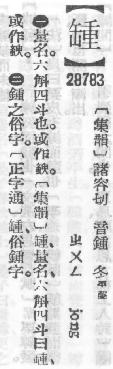 28783
〔集韻〕諸容切 音鍾 冬平聲
ㄓㄨㄥ jong
㊀量名。六斛四斗也。或作。〔集韻〕、量名、六斛四斗曰、
或作。㊁鍾之俗字。〔正字通〕、俗鍾字。